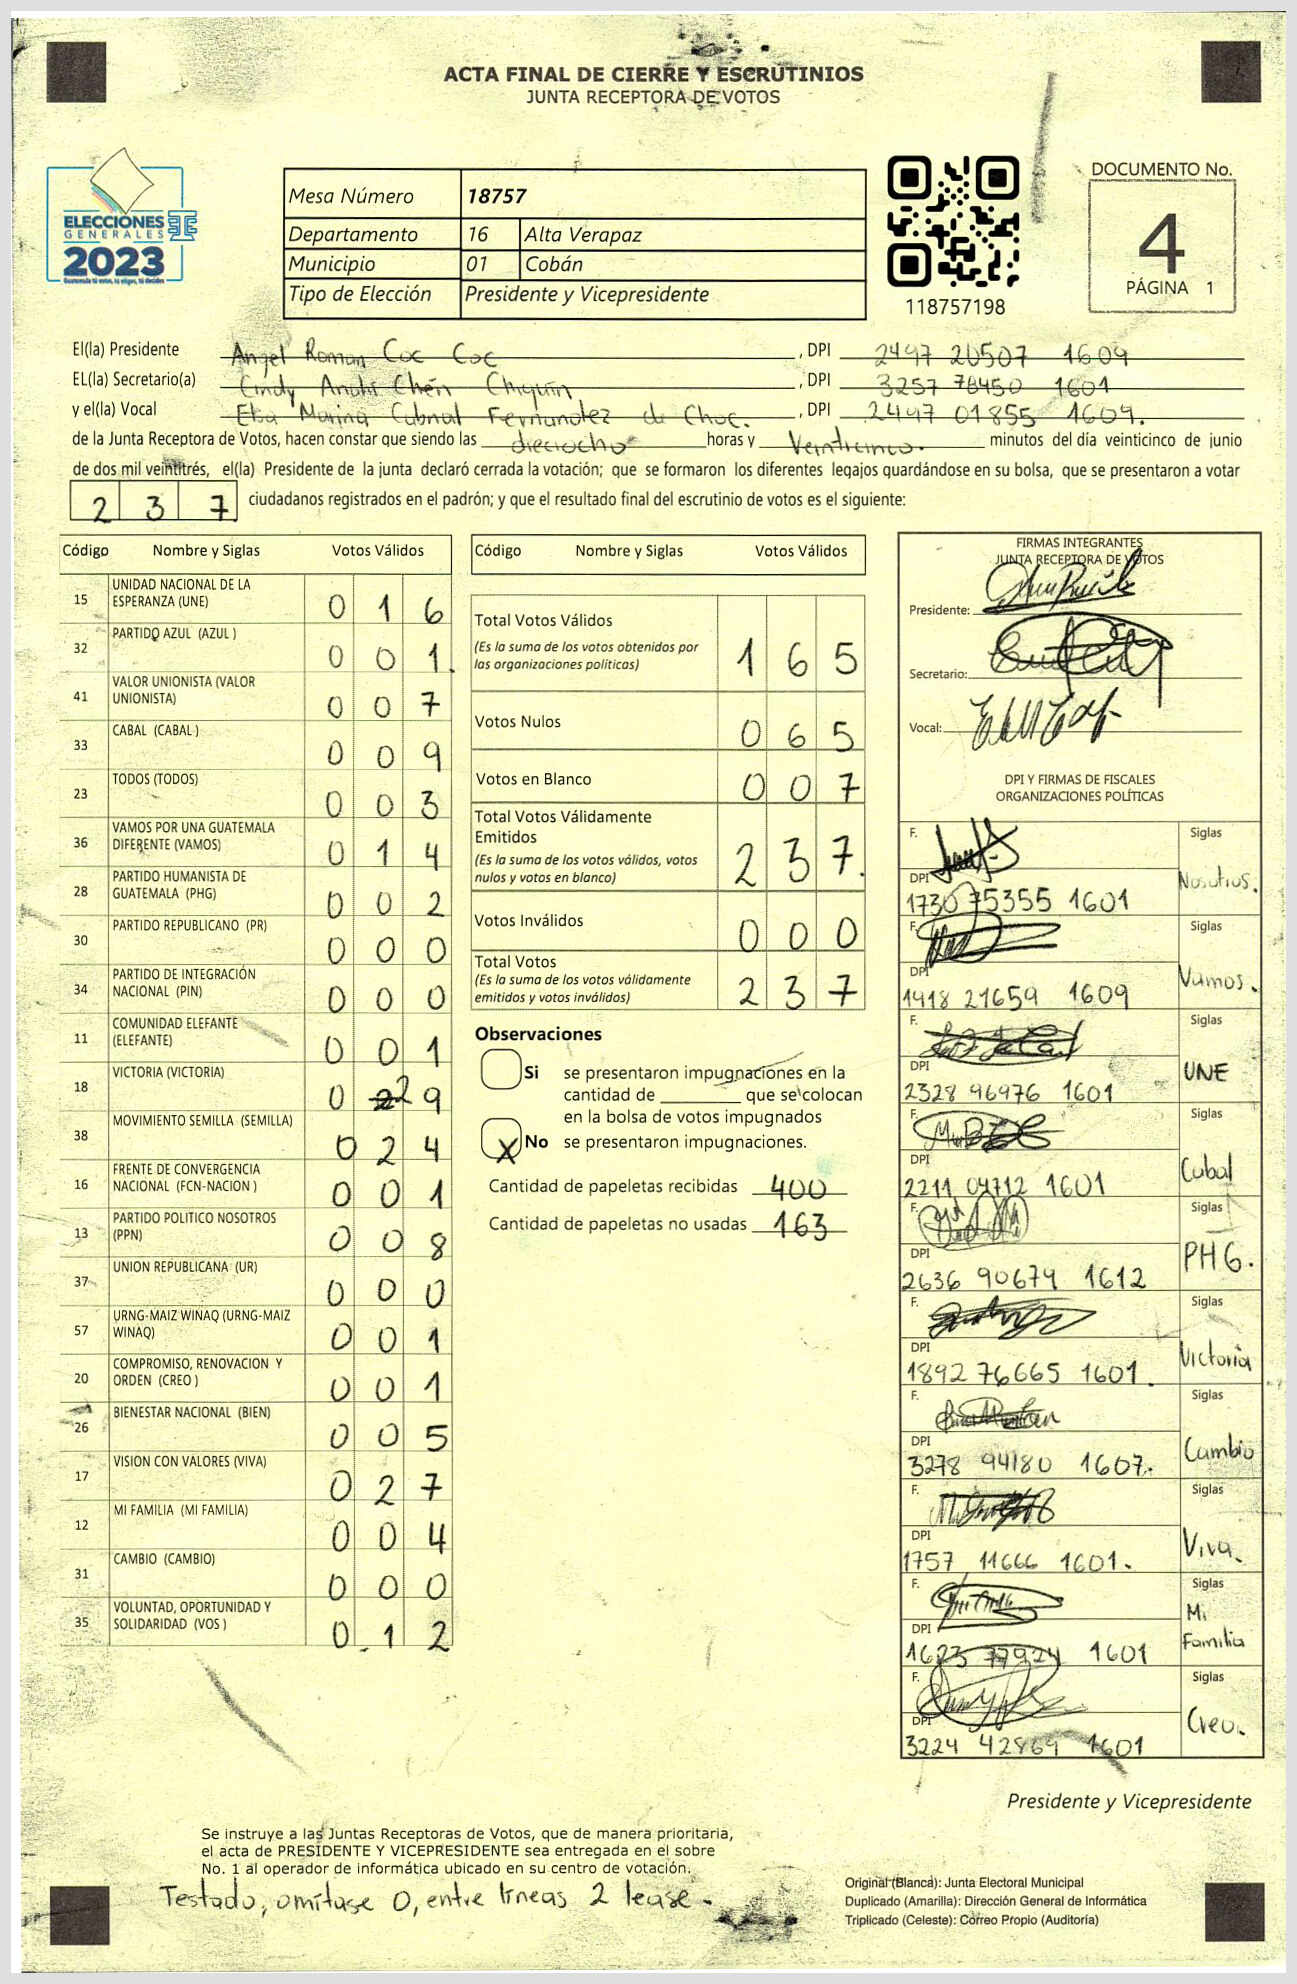 ACTA FINAL DE CIERRE Y ESCRUTINIOS
JUNTA RECEPTORA DE VOTOS
ELECCIONES
GENERALES
2023
Mesa Número 18757
Departamento 16 Alta Verapaz
Municipio 01 Cobán
Tipo de Elección Presidente y Vicepresidente
118757198
DOCUMENTO No.
4
PÁGINA 1
El(la) Presidente Angel Roman Coc Coc , DPI 2497 20507 1609
EL(la) Secretario(a) Cindy Anahí Chén Chiquín , DPI 3257 78450 1601
y el(la) Vocal Elsa Marina Cabnal Fernandez de Choc. , DPI 2497 01855 1609.
de la Junta Receptora de Votos, hacen constar que siendo las dieciocho horas y Veinticinco. minutos del día veinticinco de junio
de dos mil veintitrés, el(la) Presidente de la junta declaró cerrada la votación; que se formaron los diferentes legajos guardándose en su bolsa, que se presentaron a votar
2 3 7 ciudadanos registrados en el padrón; y que el resultado final del escrutinio de votos es el siguiente:
Código Nombre y Siglas Votos Válidos
15 UNIDAD NACIONAL DE LA ESPERANZA (UNE) 0 1 6
32 PARTIDO AZUL (AZUL ) 0 0 1.
41 VALOR UNIONISTA (VALOR UNIONISTA) 0 0 7
33 CABAL (CABAL ) 0 0 9
23 TODOS (TODOS) 0 0 3
36 VAMOS POR UNA GUATEMALA DIFERENTE (VAMOS) 0 1 4
28 PARTIDO HUMANISTA DE GUATEMALA (PHG) 0 0 2
30 PARTIDO REPUBLICANO (PR) 0 0 0
34 PARTIDO DE INTEGRACIÓN NACIONAL (PIN) 0 0 0
11 COMUNIDAD ELEFANTE (ELEFANTE) 0 0 1
18 VICTORIA (VICTORIA) 0 2 9
38 MOVIMIENTO SEMILLA (SEMILLA) 0 2 4
16 FRENTE DE CONVERGENCIA NACIONAL (FCN-NACION ) 0 0 1
13 PARTIDO POLITICO NOSOTROS (PPN) 0 0 8
37 UNION REPUBLICANA (UR) 0 0 0
57 URNG-MAIZ WINAQ (URNG-MAIZ WINAQ) 0 0 1
20 COMPROMISO, RENOVACION Y ORDEN (CREO ) 0 0 1
26 BIENESTAR NACIONAL (BIEN) 0 0 5
17 VISION CON VALORES (VIVA) 0 2 7
12 MI FAMILIA (MI FAMILIA) 0 0 4
31 CAMBIO (CAMBIO) 0 0 0
35 VOLUNTAD, OPORTUNIDAD Y SOLIDARIDAD (VOS ) 0.1 2
Código Nombre y Siglas Votos Válidos
Total Votos Válidos 1 6 5
(Es la suma de los votos obtenidos por
las organizaciones políticas)
Votos Nulos 0 6 5
Votos en Blanco 0 0 7
Total Votos Válidamente
Emitidos 2 3 7.
(Es la suma de los votos válidos, votos
nulos y votos en blanco)
Votos Inválidos 0 0 0
Total Votos 2 3 7
(Es la suma de los votos válidamente
emitidos y votos inválidos)
Observaciones
Si se presentaron impugnaciones en la
cantidad de ________ que se colocan
en la bolsa de votos impugnados
X No se presentaron impugnaciones.
Cantidad de papeletas recibidas 400
Cantidad de papeletas no usadas 163
FIRMAS INTEGRANTES
JUNTA RECEPTORA DE VOTOS
Presidente:
Secretario:
Vocal:
DPI Y FIRMAS DE FISCALES
ORGANIZACIONES POLÍTICAS
F. Siglas
DPI Nosotros.
1730 75355 1601
F. Siglas
DPI Vamos.
1418 21659 1609
F. Siglas
DPI UNE
2328 96976 1601
F. Siglas
DPI Cabal
2211 04712 1601
F. Siglas
DPI PHG.
2636 90674 1612
F. Siglas
DPI Victoria
1892 76665 1601.
F. Siglas
DPI Cambio
3278 94180 1607.
F. Siglas
DPI Viva.
1757 11666 1601.
F. Siglas
DPI Mi Familia
1623 77924 1601
F. Siglas
DPI Creo.
3224 42869 1601
Presidente y Vicepresidente
Se instruye a las Juntas Receptoras de Votos, que de manera prioritaria,
el acta de PRESIDENTE Y VICEPRESIDENTE sea entregada en el sobre
No. 1 al operador de informática ubicado en su centro de votación.
Testado, omítase 0, entre líneas 2 lease.
Original (Blanca): Junta Electoral Municipal
Duplicado (Amarilla): Dirección General de Informática
Triplicado (Celeste): Correo Propio (Auditoría)